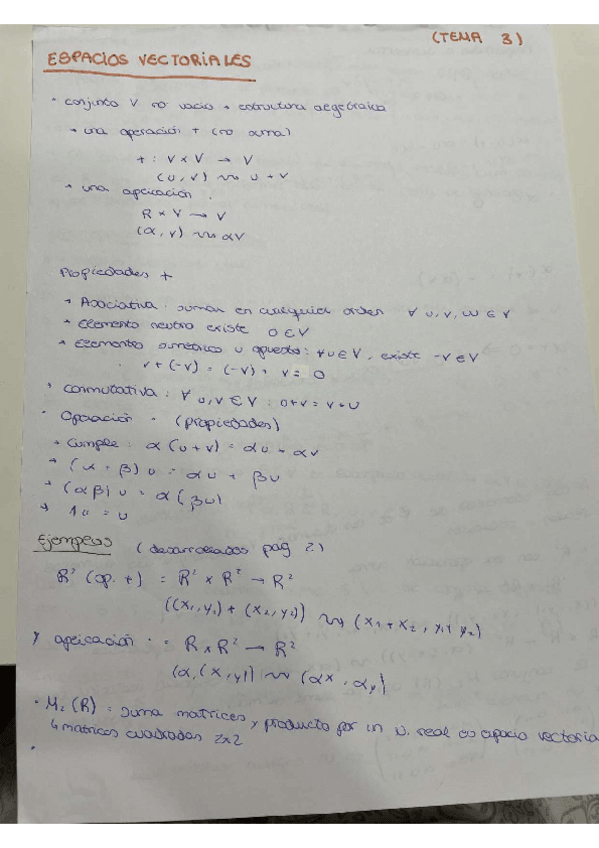 (TEMA 3)
ESPACIOS VECTORIALES
· conjunto V no vacio + estructura algebraica
→ una operación + (no suma)
+ : V x V → V
(u, v) ⇝ u + v
→ una aplicación ·
R x V → V
(α, v) ⇝ αv
Propiedades +
→ Asociativa: suman en cualquier orden ∀ u, v, w ∈ V
→ Elemento neutro existe 0 ∈ V
→ Elemento simétrico u opuesto: ∀ u ∈ V, existe -v ∈ V
v + (-v) = (-v) + v = 0
→ conmutativa: ∀ u, v ∈ V : u+v = v+u
· Operación · (propiedades)
→ Cumple: α (u+v) = αu + αv
→ (α + β) u = αu + βu
→ (αβ) u = α (βu)
→ 1u = u
Ejemplos (desarrollados pag 2)
R² (op. +) = R² x R² → R²
((x₁, y₁) + (x₂, y₂)) ⇝ (x₁ + x₂, y₁ y₂)
y aplicación · = R x R² → R²
(α, (x, y)) ⇝ (αx, αy)
· M₂ (R) = suma matrices y producto por un n. real es espacio vectoria
↳ matrices cuadradas 2x2